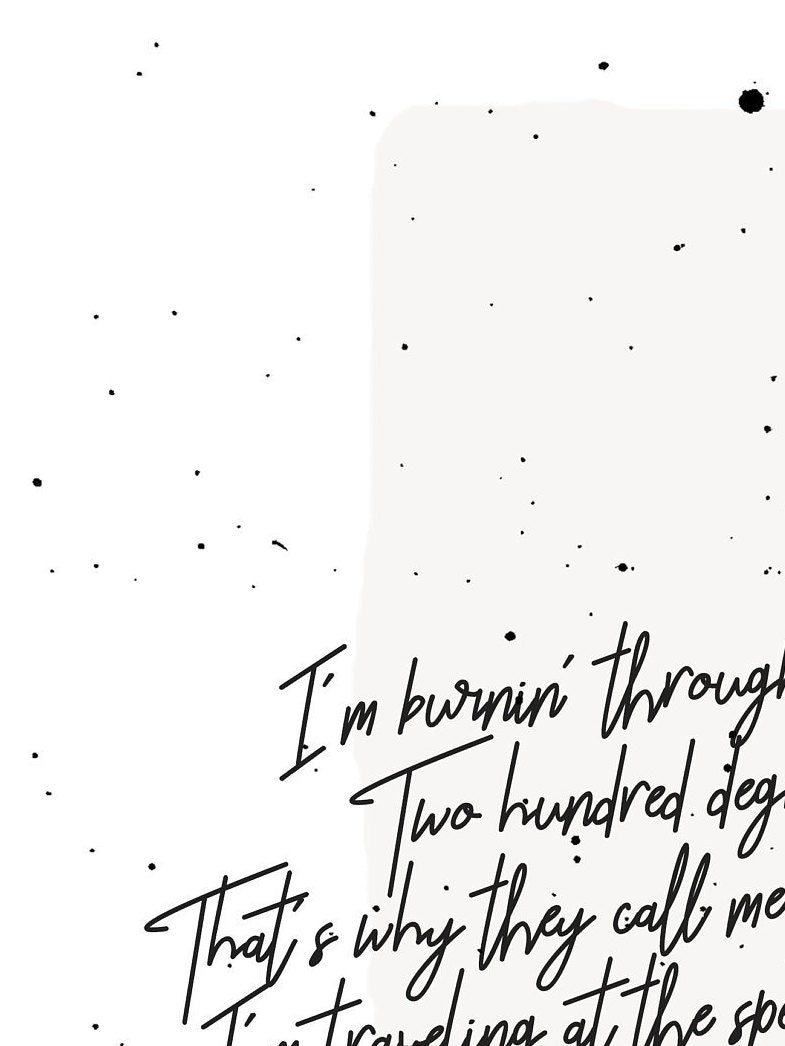 I'm burnin' through
Two hundred deg
That's why they call me
I'm traveling at the spe